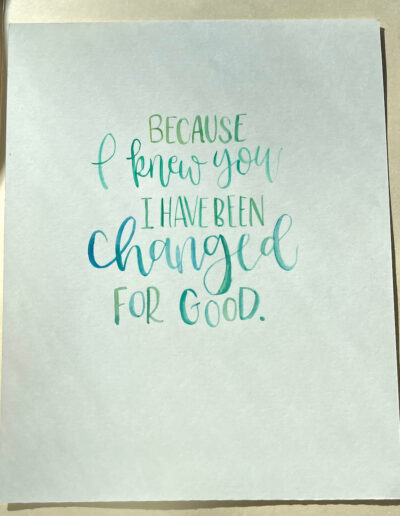 BECAUSE
I knew you
I HAVE BEEN
changed
FOR GOOD.